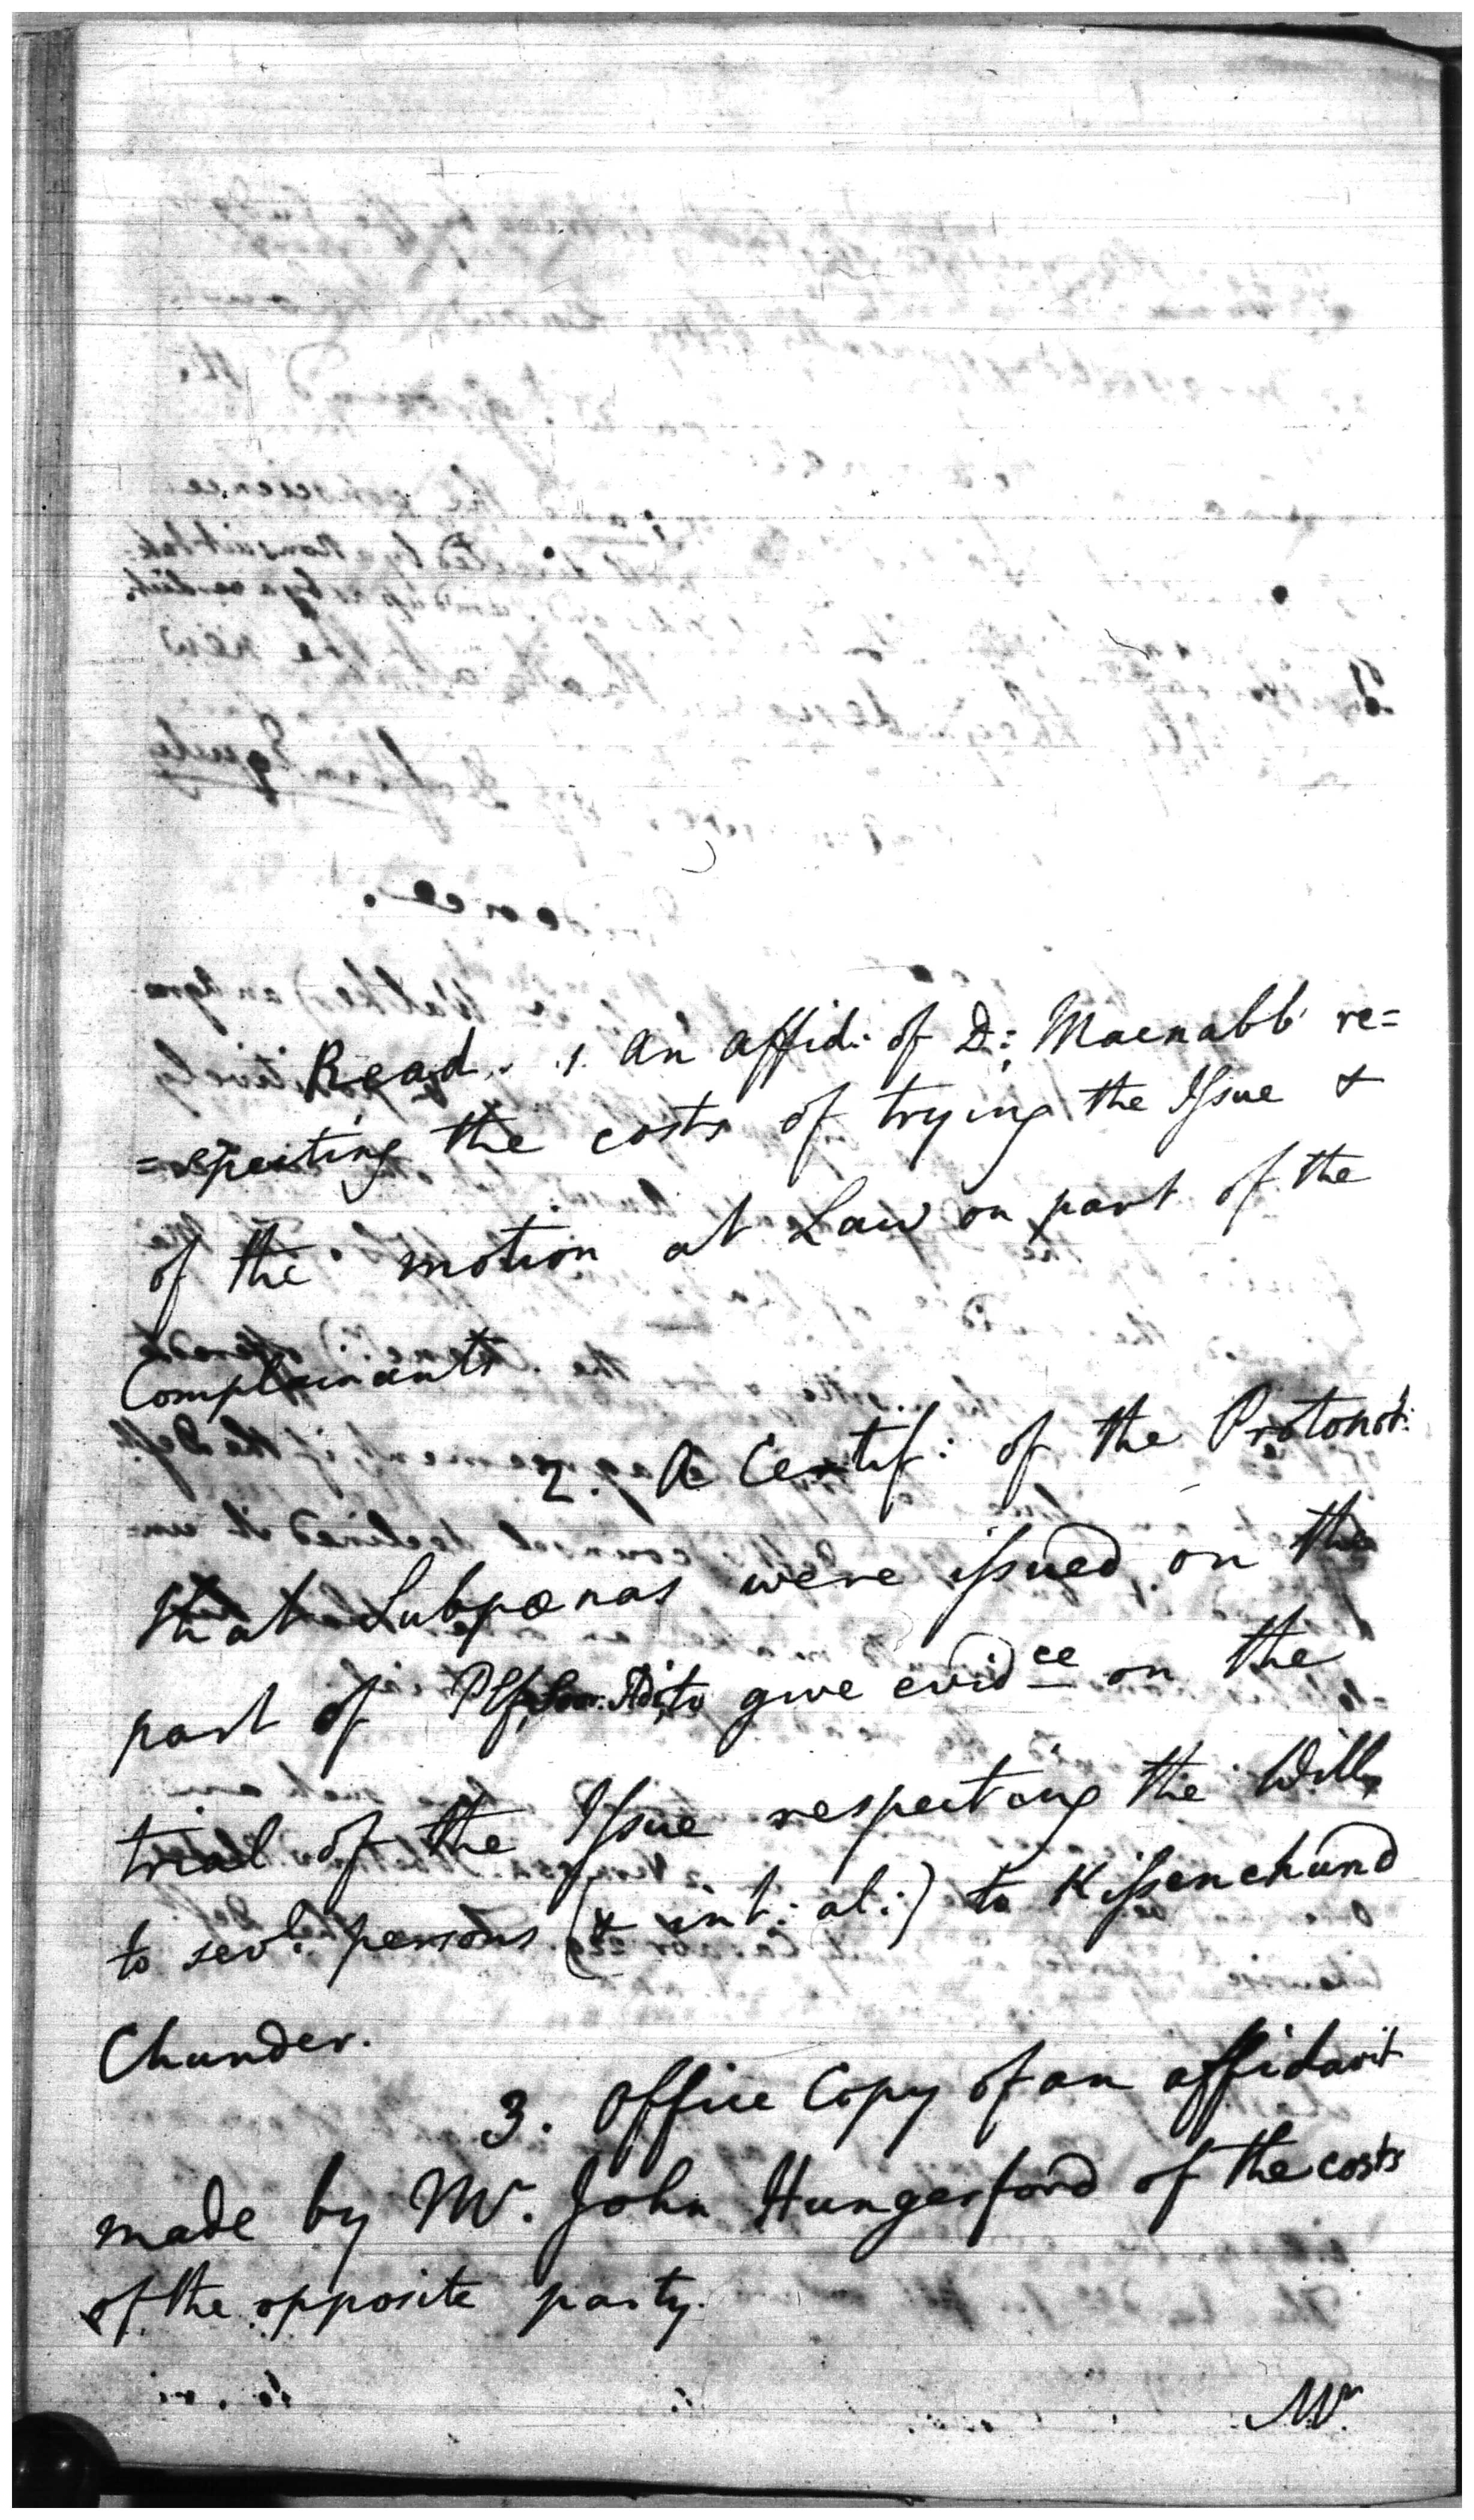 Read. 1. An affid: of D: Macnabb re=
=specting the costs of trying the Issue &
of the motion at Law on part of the
Complainants
2. A Certif: of the Protonot:
that Subpœnas were issued on the
part of Plf to give evid^ce on the
trial of the Issue respecting the Will
to sev^l: persons (& int: al:) to Kissenchund
Chunder.
3. Office Copy of an affidavit
made by Mr. John Hungerford of the costs
of the opposite party.
Mr.